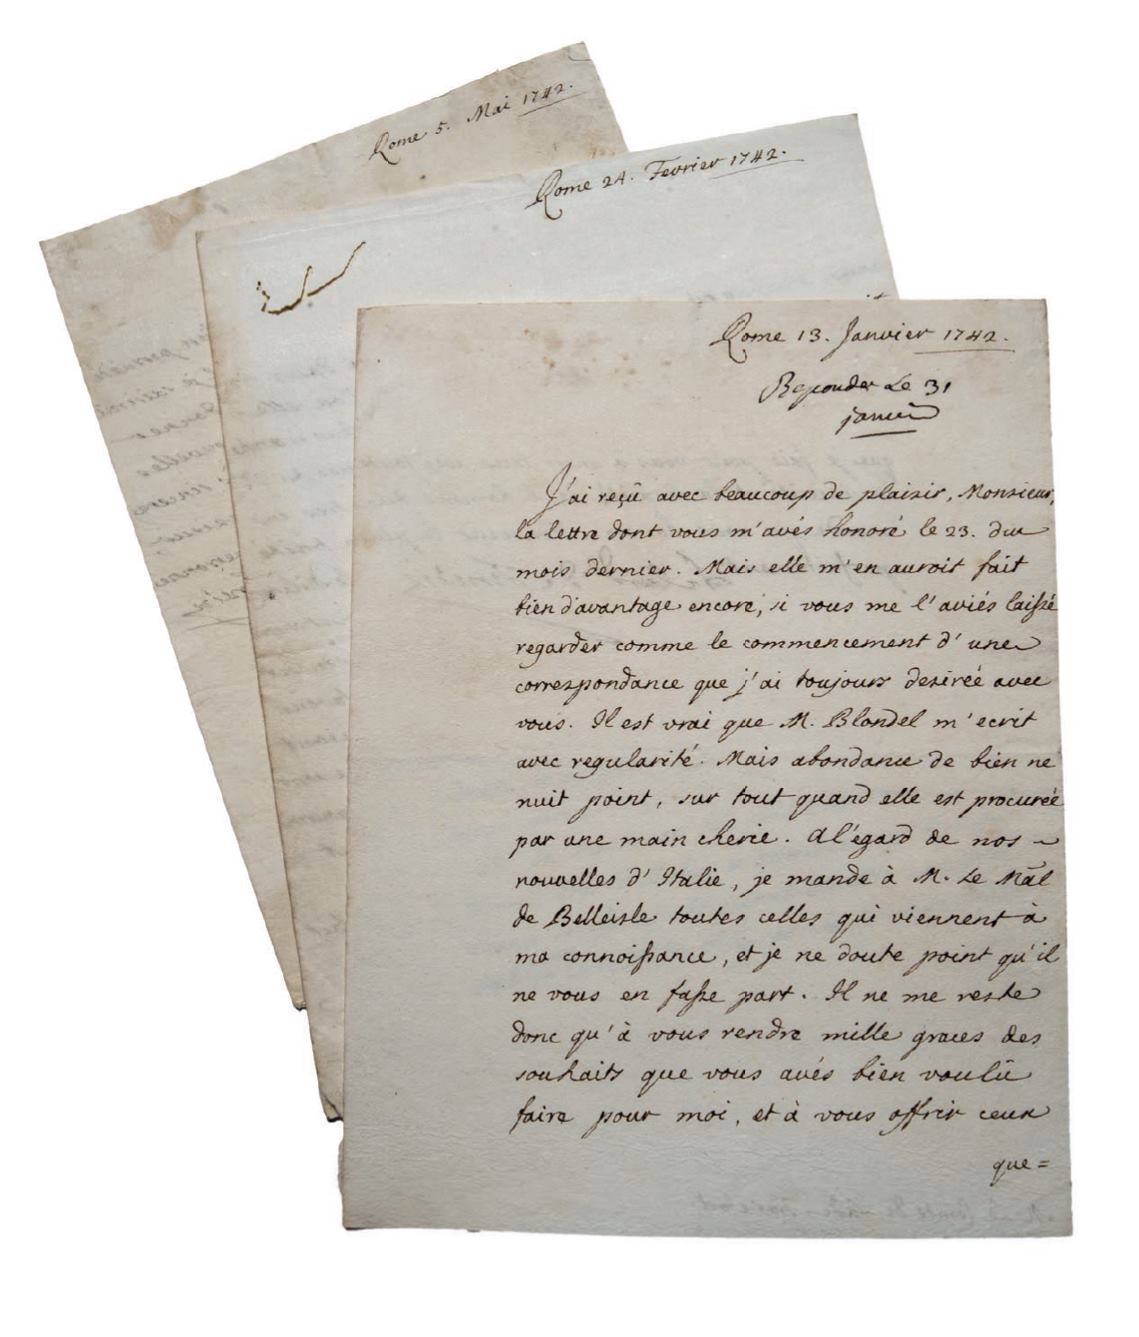 Rome 5. Mai 1742.
Rome 24. Fevrier 1742.
Rome 13. Janvier 1742.
Repondu Le 31
janvier
J'ai reçû avec beaucoup de plaisir, Monsieur,
la lettre dont vous m'avés honoré le 23. du
mois dernier. Mais elle m'en auroit fait
bien d'avantage encore, si vous me l'aviés laissé
regarder comme le commencement d'une
correspondance que j'ai toujours desireé avec
vous. Il est vrai que M. Blondel m'ecrit
avec regularité. Mais abondance de bien ne
nuit point, sur tout quand elle est procureé
par une main cherie. A l'égard de nos
nouvelles d'Italie, je mande à M. Le Mãl
de Belleisle toutes celles qui viennent à
ma connoissance, et je ne doute point qu'il
ne vous en fasse part. Il ne me reste
donc qu'à vous rendre mille graces des
souhaits que vous avés bien voulû
faire pour moi, et à vous offrir ceux
que=